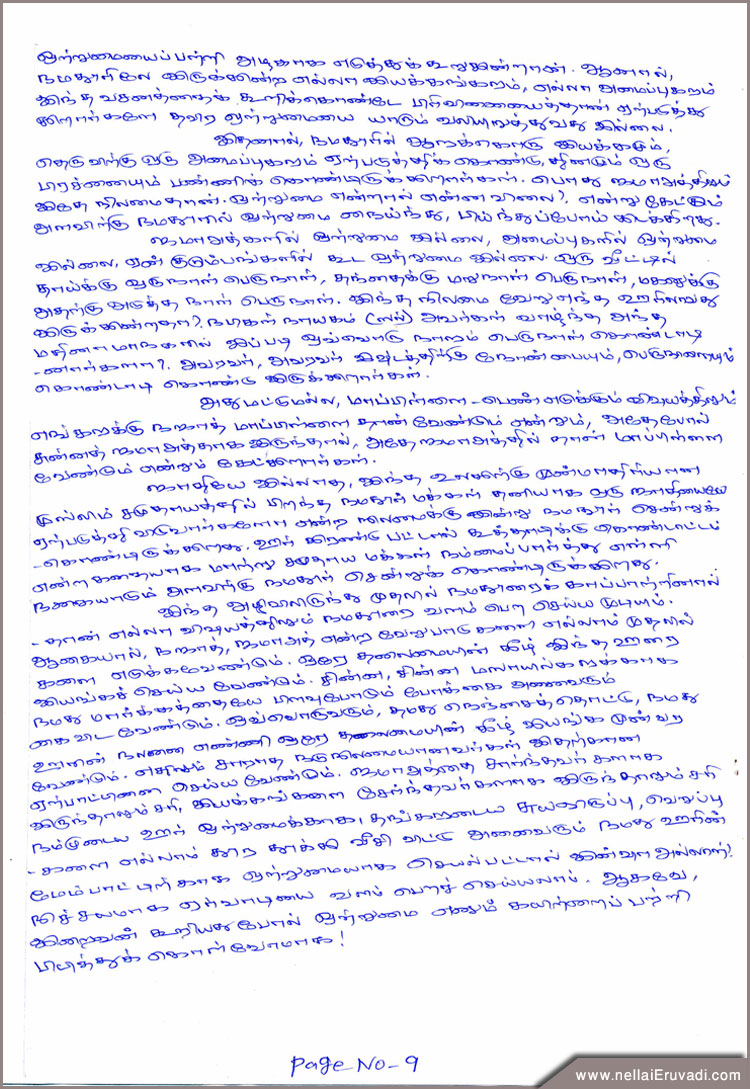 ஒற்றுமையைப்பற்றி அதிகமாக எடுத்துக் கூறுகின்றான். ஆனால்,
நமதூரிலே இருக்கின்ற எல்லா இயக்கங்களும், எல்லா அமைப்புகளும்
இந்த வசனத்தைக் கூறிக்கொண்டே பிரிவினையைத்தான் ஏற்படுத்து
கிறார்களே தவிர ஒற்றுமையை யாரும் வலியுறுத்துவது இல்லை.
இதனால், நமதூரில் ஆளுக்கொரு இயக்கமும்,
தெருவிற்கு ஒரு அமைப்புகளும் ஏற்படுத்திக் கொண்டு, தினமும் ஒரு
பிரச்னையும் பண்ணிக் கொண்டிருக்கிறார்கள். பொது ஜமாஅத்திலும்
இதே நிலைமைதான். ஒற்றுமை என்றால் என்ன விலை? என்று கேட்கும்
அளவிற்கு நமதூரில் ஒற்றுமை நைய்ந்து, பிய்ந்துப்போய் கிடக்கிறது.
ஜமாஅத்களில் ஒற்றுமை இல்லை, அமைப்புகளில் ஒற்றுமை
இல்லை, ஏன் குடும்பங்களில் கூட ஒற்றுமை இல்லை. ஒரு வீட்டில்
தாய்க்கு ஒருநாள் பெருநாள், தந்தைக்கு மறுநாள் பெருநாள், மகனுக்கு
அதற்கு அடுத்த நாள் பெருநாள். இந்த நிலமை வேறு எந்த ஊரிலாவது
இருக்கின்றதா? நபிகள் நாயகம் (ஸல்) அவர்கள் வாழ்ந்த அந்த
மதினா மாநகரில் இப்படி ஒவ்வொரு நாளும் பெருநாள் கொண்டாடி
-னார்களா? அவரவர், அவரவர் இஷ்டத்திற்கு நோன்பையும், பெருநாளையும்
கொண்டாடி கொண்டு இருக்கிறார்கள்.
அதுமட்டுமல்ல, மாப்பிள்ளை - பெண் எடுக்கும் விஷயத்திலும்
எங்களுக்கு நஜாத் மாப்பிள்ளை தான் வேண்டும் என்றும், அதேபோல்
சுன்னத் ஜமாஅத்தாக இருந்தால், அதே ஜமாஅத்தில் தான் மாப்பிள்ளை
வேண்டும் என்றும் கேட்கிறார்கள்.
ஜாதியே இல்லாத, இந்த உலகிற்கு முன்மாதிரியான
முஸ்லிம் சமுதாயத்தில் பிறந்த நமதூர் மக்கள் தனியாக ஒரு ஜாதியையே
ஏற்படுத்தி விடுவார்களோ என்ற நிலைமைக்கு இன்று நமதூர் சென்றுக்
-கொண்டிருக்கிறது. ஊர் இரண்டு பட்டால் கூத்தாடிக்கு கொண்டாட்டம்
என்ற கதையாக மாற்று சமுதாய மக்கள் நம்மைப்பார்த்து எள்ளி
நகையாடும் அளவிற்கு நமதூர் சென்றுக் கொண்டிருக்கிறது.
இந்த அழிவிலிருந்து முதலில் நமதூரைக் காப்பாற்றினால்
-தான் எல்லா விஷயத்திலும் நமதூரை வளம் பெற செய்ய முடியும்.
ஆகையால், நஜாத், ஜமாஅத் என்ற வேறுபாடுகளை எல்லாம் முதலில்
களை எடுக்கவேண்டும். ஒரே தலைமையின் கீழ் இந்த ஊரை
இயங்கச் செய்ய வேண்டும். சின்ன, சின்ன மஸாயில்களுக்காக
நமது மார்க்கத்தையே பிளவுபோடும் போக்கை அனைவரும்
கைவிட வேண்டும். ஒவ்வொருவரும், தமது நெஞ்சைத்தொட்டு, நமது
ஊரின் நலனை எண்ணி ஒரே தலைமையின் கீழ் இயங்க முன்வர
வேண்டும். எதிலும் சாராத நடுநிலைமையானவர்கள் இதற்கான
ஏற்பாட்டினை செய்ய வேண்டும். ஜமாஅத்தை சார்ந்தவர்களாக
இருந்தாலும் சரி, இயக்கங்களை சேர்ந்தவர்களாக இருந்தாலும் சரி
நம்முடைய ஊர் ஒற்றுமைக்காக, தங்களுடைய சுயவிருப்பு, வெறுப்பு
-களை எல்லாம் தூர தூக்கி வீசி விட்டு அனைவரும் நமது ஊரின்
மேம்பாட்டிற்காக ஒற்றுமையாக செயல்பட்டால் இன்ஷா அல்லாஹ்!
நிச்சயமாக ஏர்வாடியை வளம் பெறச் செய்யலாம். ஆகவே,
இறைவன் கூறியதுபோல் ஒற்றுமை எனும் கயிற்றைப் பற்றி
பிடித்துக் கொள்வோமாக!
Page No-9
www.nellaiEruvadi.com